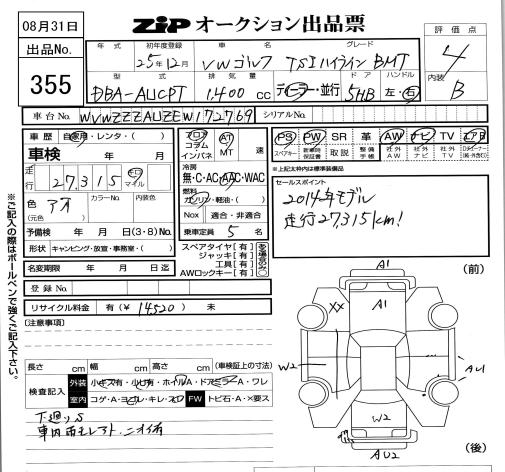 08月31日
ZiP オークション出品票
出品No.
355
評価点
4
内装
B
年式 初年度登録 車名 グレード
25年12月 VWゴルフ TSIハイラインBMT
型式 排気量 ドア ハンドル
DBA-AUCPT 1,400 cc ディーラー・並行 5HB 左・右
車台No. WVWZZZAUZEW172769 シリアルNo.
車歴 自家用・レンタ・( )
車検 年 月
走行 27,315 マイル
色 アオ カラーNo. 内装色
(元色)
予備検 年 月 日(3・8)No.
形状 キャンピング・放宣・事務室・( )
名変期限 年 月 日迄
登録No.
リサイクル料金 有(¥ 14520 ) 未
フロア
コラム
インパネ
AT
MT
速
冷房
無・C・AC・AAC・WAC
燃料
ガソリン・軽油・( )
NOX 適合・非適合
乗車定員 5 名
スペアタイヤ【有】
ジャッキ【有】
工具【有】
AWロックキー【有】
PS PW SR 革 AW ナビ TV エアB
スペアキー 新車時保証書 取説 整備手帳 社外AW 社外ナビ 社外TV
※上記太枠内は標準装備品
セールスポイント
2014年モデル
走行27,315km!
※ご記入の際はボールペンで強くご記入下さい。
【注意事項】
長さ cm 幅 cm 高さ cm (車検証上の寸法)
検査記入
外装 小キズ有・小凹有・ホイルA・ドアミラーA・ワレ
室内 コゲ・A・ヨゴレ・キレ・スレ FW トビ石・A・×要ス
下廻りS
車内雨モレアト、ニオイ有
(前)
A1
A1
XX
W2
AU1
W2
AU2
(後)